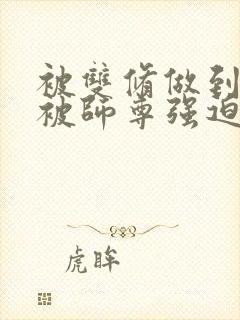 被雙脩做到
被師尊强迫
虎眸